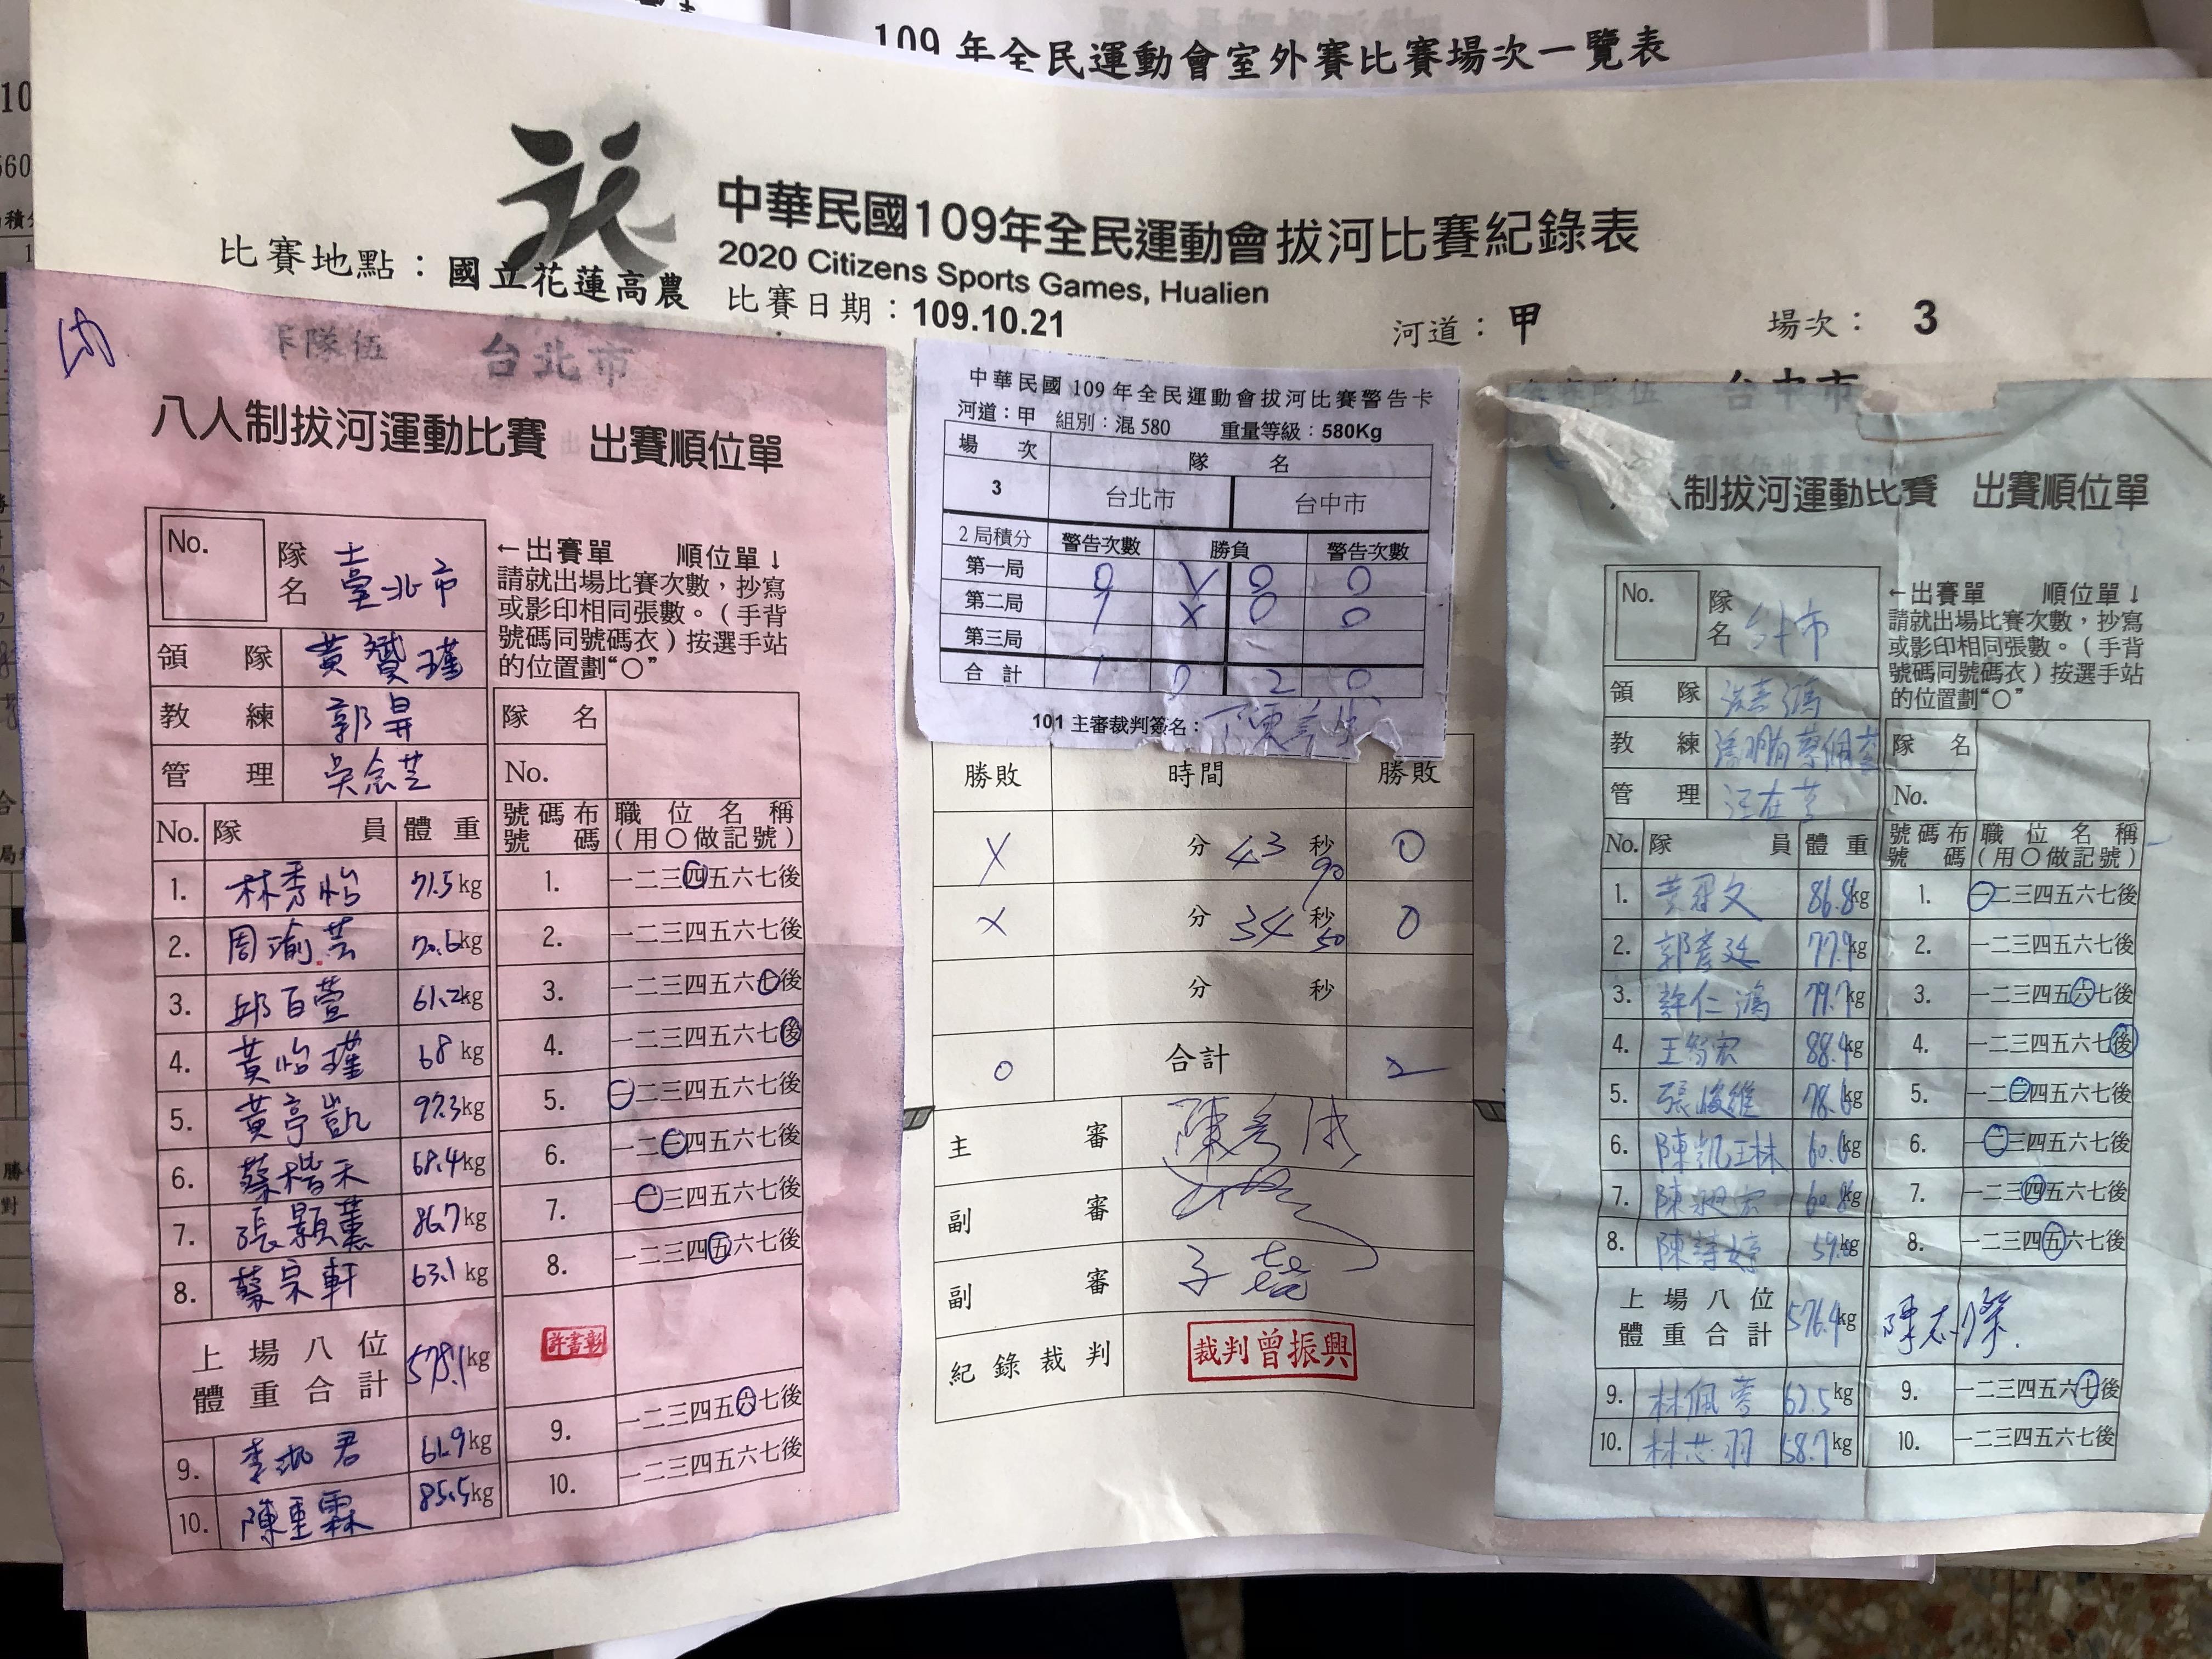 109年全民運動會室外賽比賽場次一覽表
中華民國109年全民運動會拔河比賽紀錄表
2020 Citizens Sports Games, Hualien
比賽地點：國立花蓮高農
比賽日期：109.10.21
河道：甲
場次： 3
隊伍 台北市
八人制拔河運動比賽 出賽順位單
No. 隊名 臺北市
領隊 黃贇瑾
教練 郭昇
管理 吳念芝
←出賽單 順位單↓
請就出場比賽次數，抄寫
或影印相同張數。（手背
號碼同號碼衣）按選手站
的位置劃“○”
隊名
No.
No. 隊員 體重
號碼布號碼 職位名稱（用○做記號）
1. 林秀怡 71.5kg 1. 一二三四五六七後
2. 周瑜芸 70.6kg 2. 一二三四五六七後
3. 邱百萱 61.2kg 3. 一二三四五六七後
4. 黃怡瑾 68kg 4. 一二三四五六七後
5. 黃亭凱 97.3kg 5. 一二三四五六七後
6. 蔡楷禾 68.4kg 6. 一二三四五六七後
7. 張顥薰 86.7kg 7. 一二三四五六七後
8. 蔡宗軒 63.1kg 8. 一二三四五六七後
上場八位體重合計 578.1kg
許書彰
9. 君 61.9kg 9. 一二三四五六七後
10. 陳重霖 85.5kg 10. 一二三四五六七後
中華民國109年全民運動會拔河比賽警告卡
河道：甲 組別：混580 重量等級：580Kg
場次 隊名
3 台北市 台中市
2局積分 警告次數 勝負 警告次數
第一局 0 X 0 0
第二局 1 X 0 0
第三局
合計 1 0 2 0
101主審裁判簽名：
勝敗 時間 勝敗
X 分 43 秒 90 0
X 分 34 秒 50 0
分 秒
0 合計 2
主審
副審
副審
紀錄裁判 裁判曾振興
台中市
人制拔河運動比賽 出賽順位單
No. 隊名 台中市
領隊
教練
管理
←出賽單 順位單↓
請就出場比賽次數，抄寫
或影印相同張數。（手背
號碼同號碼衣）按選手站
的位置劃“○”
隊名
No.
No. 隊員 體重
號碼布號碼 職位名稱（用○做記號）
1. 黃冠文 86.8kg 1. 一二三四五六七後
2. 郭彥廷 77.9kg 2. 一二三四五六七後
3. 許仁鴻 79.7kg 3. 一二三四五六七後
4. 王智宏 88.4kg 4. 一二三四五六七後
5. 張峻維 78.6kg 5. 一二三四五六七後
6. 陳凱琳 60.6kg 6. 一二三四五六七後
7. 陳 宏 60.8kg 7. 一二三四五六七後
8. 陳詩婷 kg 8. 一二三四五六七後
上場八位體重合計 576.4kg
9. 林佩蓉 62.5kg 9. 一二三四五六七後
10. 林芯羽 58.7kg 10. 一二三四五六七後